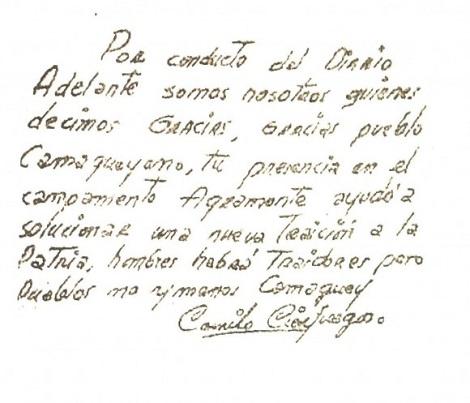 Por conducto del Diario
Adelante somos nosotros quienes
decimos Gracias, Gracias pueblo
Camagueyano, tu presencia en el
campamento Agramonte ayudó a
solucionar una nueva Traición a la
Patria, hombres habrá Traidores pero
Pueblos no Camaguey
Camilo Cienfuegos.